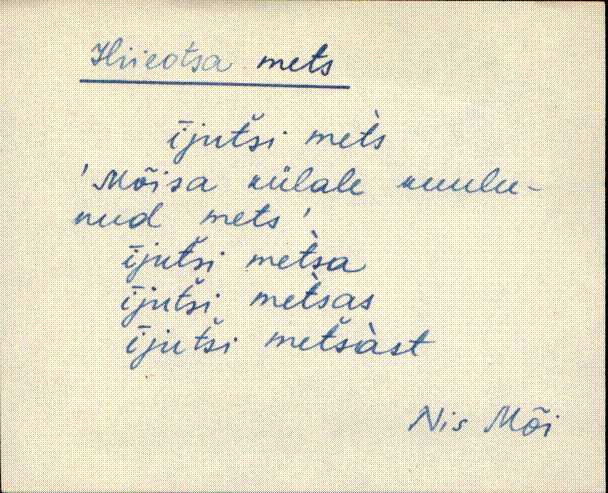 Hiieotsa mets
ījutši mèts
'Mõisa külale kuulu-
nud mets'
ījutši mètsa
ījutši mètsas
ījutši metšàst
Nis Mõi